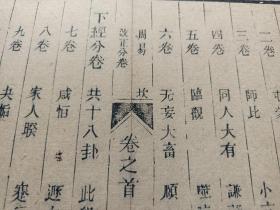 二卷
三卷 師比 小
四卷 同人大有 謙
五卷 臨觀 噬
六卷 无妄大畜 頤
周易 坎
改正分卷
卷之首
下經分卷 共十八卦 此
七卷 咸恒 遯
八卷 家人睽 蹇
九卷 夬姤